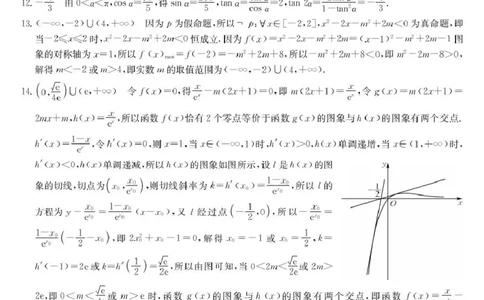 13. (-∞,-2)∪(4,+∞) 因为p为假命题,所以¬p:∀x∈[-2,2],x²-2x-m²+2m<0为真命题,即
当-2≤x≤2时,x²-2x-m²+2m<0恒成立.因为f(x)=x²-2x-m²+2m=(x-1)²-m²+2m-1图
象的对称轴为x=1,所以f(x)max=f(-2)=-m²+2m+8,所以-m²+2m+8<0,即m²-2m-8>0,
解得m<-2或m>4,即实数m的取值范围为(-∞,-2)∪(4,+∞).
14. (0,√e/4e)∪(e,+∞) 令f(x)=0,得x/eˣ-m(2x+1)=0,即m(2x+1)=x/eˣ,令g(x)=m(2x+1)=
2mx+m,h(x)=x/eˣ,所以函数f(x)恰有2个零点等价于函数g(x)的图象与h(x)的图象有两个交点.
h′(x)=(1-x)/eˣ,令h′(x)=0,则x=1,当x∈(-∞,1)时,h′(x)>0,h(x)单调递增,当x∈(1,+∞)时,
h′(x)<0,h(x)单调递减,所以h(x)的图象如图所示,设l是h(x)的图
象的切线,切点为(x₀,x₀/eˣ⁰),则切线斜率为k=h′(x₀)=(1-x₀)/eˣ⁰,所以l的
方程为y-x₀/eˣ⁰=(1-x₀)/eˣ⁰(x-x₀),又l经过点(-1/2,0),所以-x₀/eˣ⁰=
(1-x₀)/eˣ⁰(-1/2-x₀),即2x₀²+x₀-1=0,解得x₀=-1或x₀=1/2,k=
h′(-1)=2e或k=h′(1/2)=√e/2e,所以由图可知,当0<2m<√e/2e或2m>
2e,即0<m<√e/4e或m>e时,函数g(x)的图象与h(x)的图象有两个交点,即函数f(x)=x/eˣ-
y
-1/2
O
x